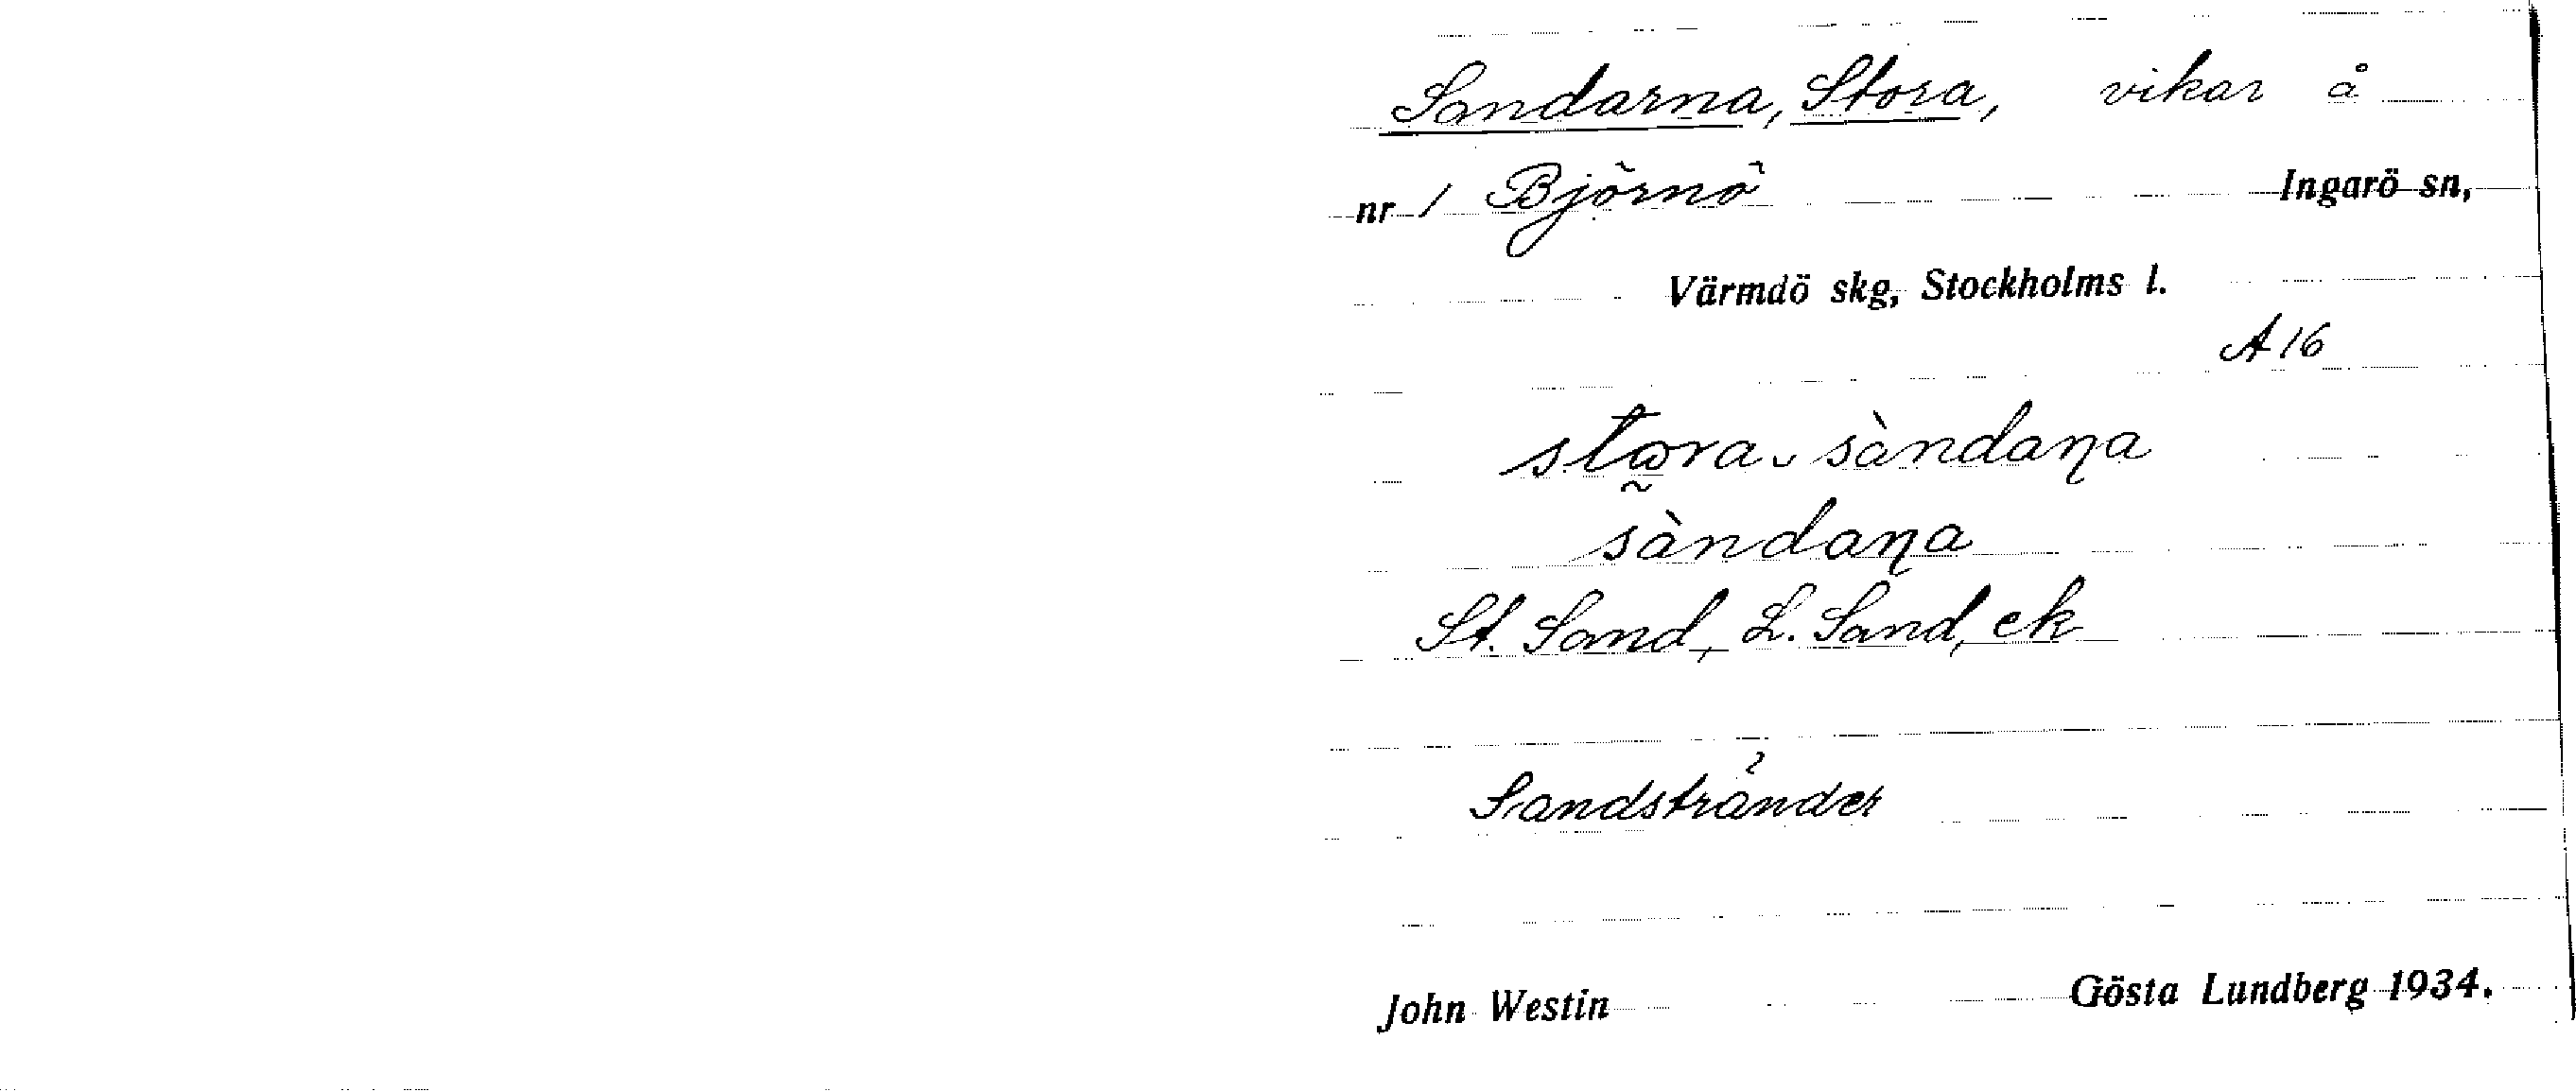 Sandarna, Stora, vikar å
nr 1 Björnö Ingarö sn,
Värmdö skg, Stockholms l.
A 16
stɷra ˬ sàndaɳa
sàndaɳa
St. Sand, L. Sand, ek
Sandstränder
John Westin Gösta Lundberg 1934.